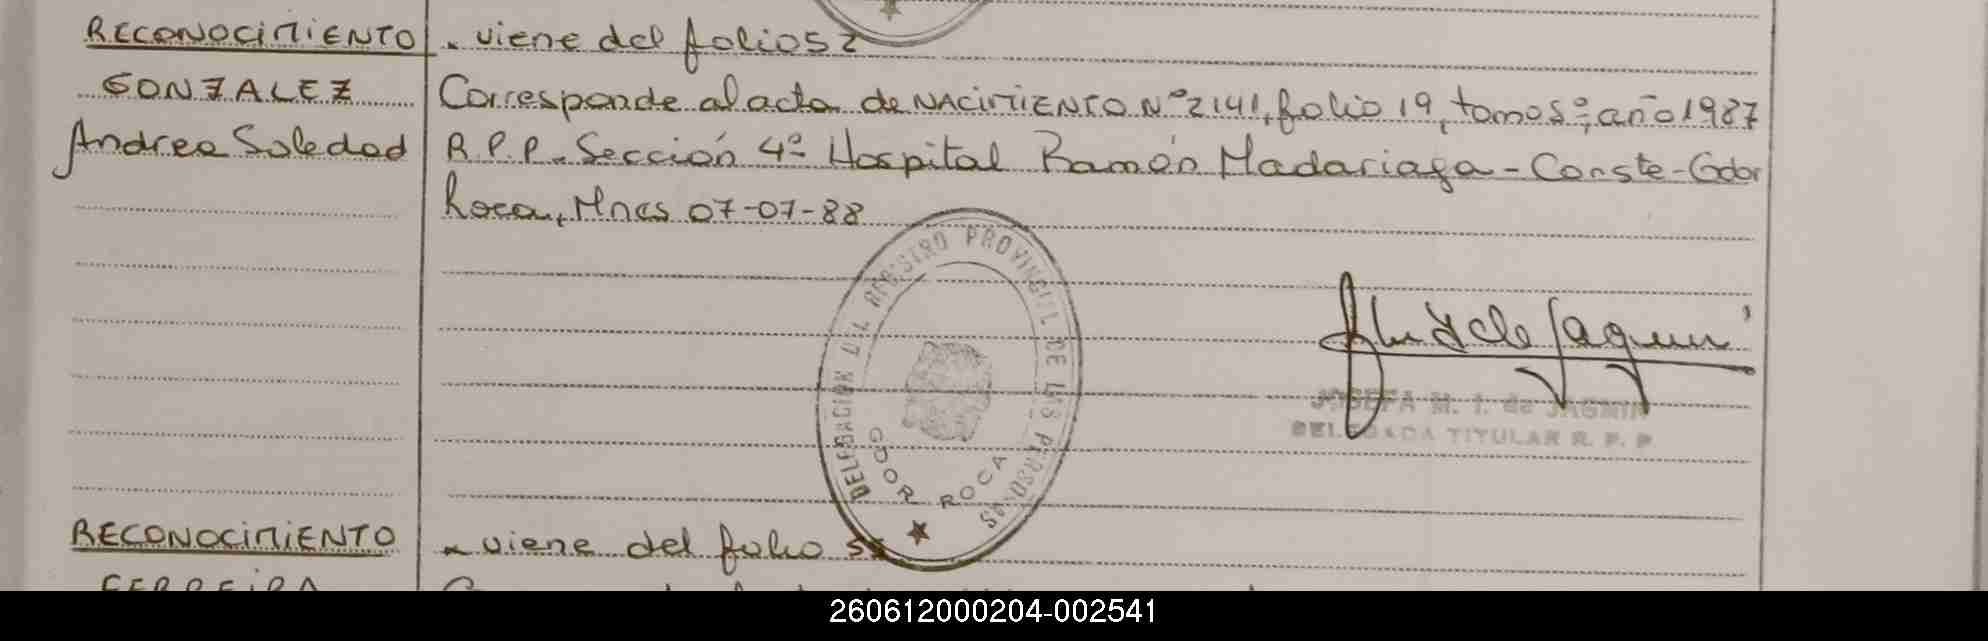 RECONOCIMIENTO
GONZALEZ
Andrea Soledad
viene del folio 52
Corresponde al acta de NACIMIENTO Nº 2141, folio 19, tomo 5º, año 1987
R.P.P. Sección 4ª Hospital Ramón Madariaga - Conste - Gdor
Roca, Mnes 07-07-88
DELEGACION DEL REGISTRO PROVINCIAL DE LAS PERSONAS
GDOR ROCA
JOSEFA M. I. de JAGMIN
DELEGADA TITULAR R. P. P
RECONOCIMIENTO
viene del folio
FERREIRA
260612000204-002541